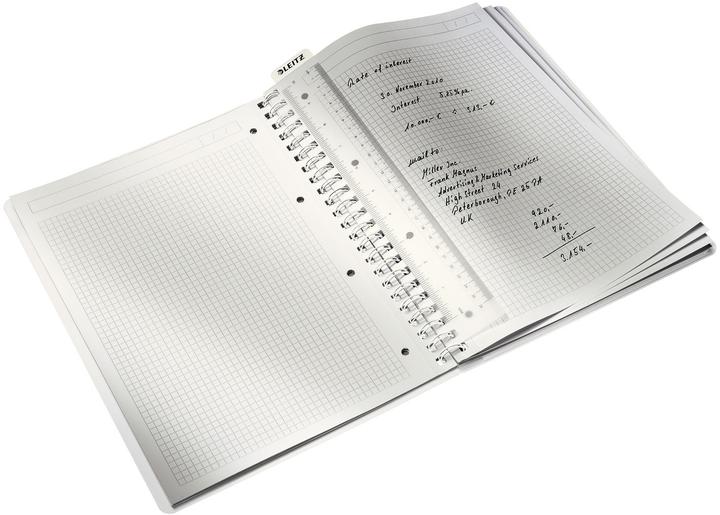 LEITZ
Rate of interest
30. November 2010
Interest 3,15% pa.
10.000,- € ÷ 313,- €
mail to:
Miller Inc.
Frank Magnus
Advertising & Marketing Services
High Street 24
Peterborough, PE 25 PA
UK
920,-
2.110,-
76,-
48,-
3.154,-